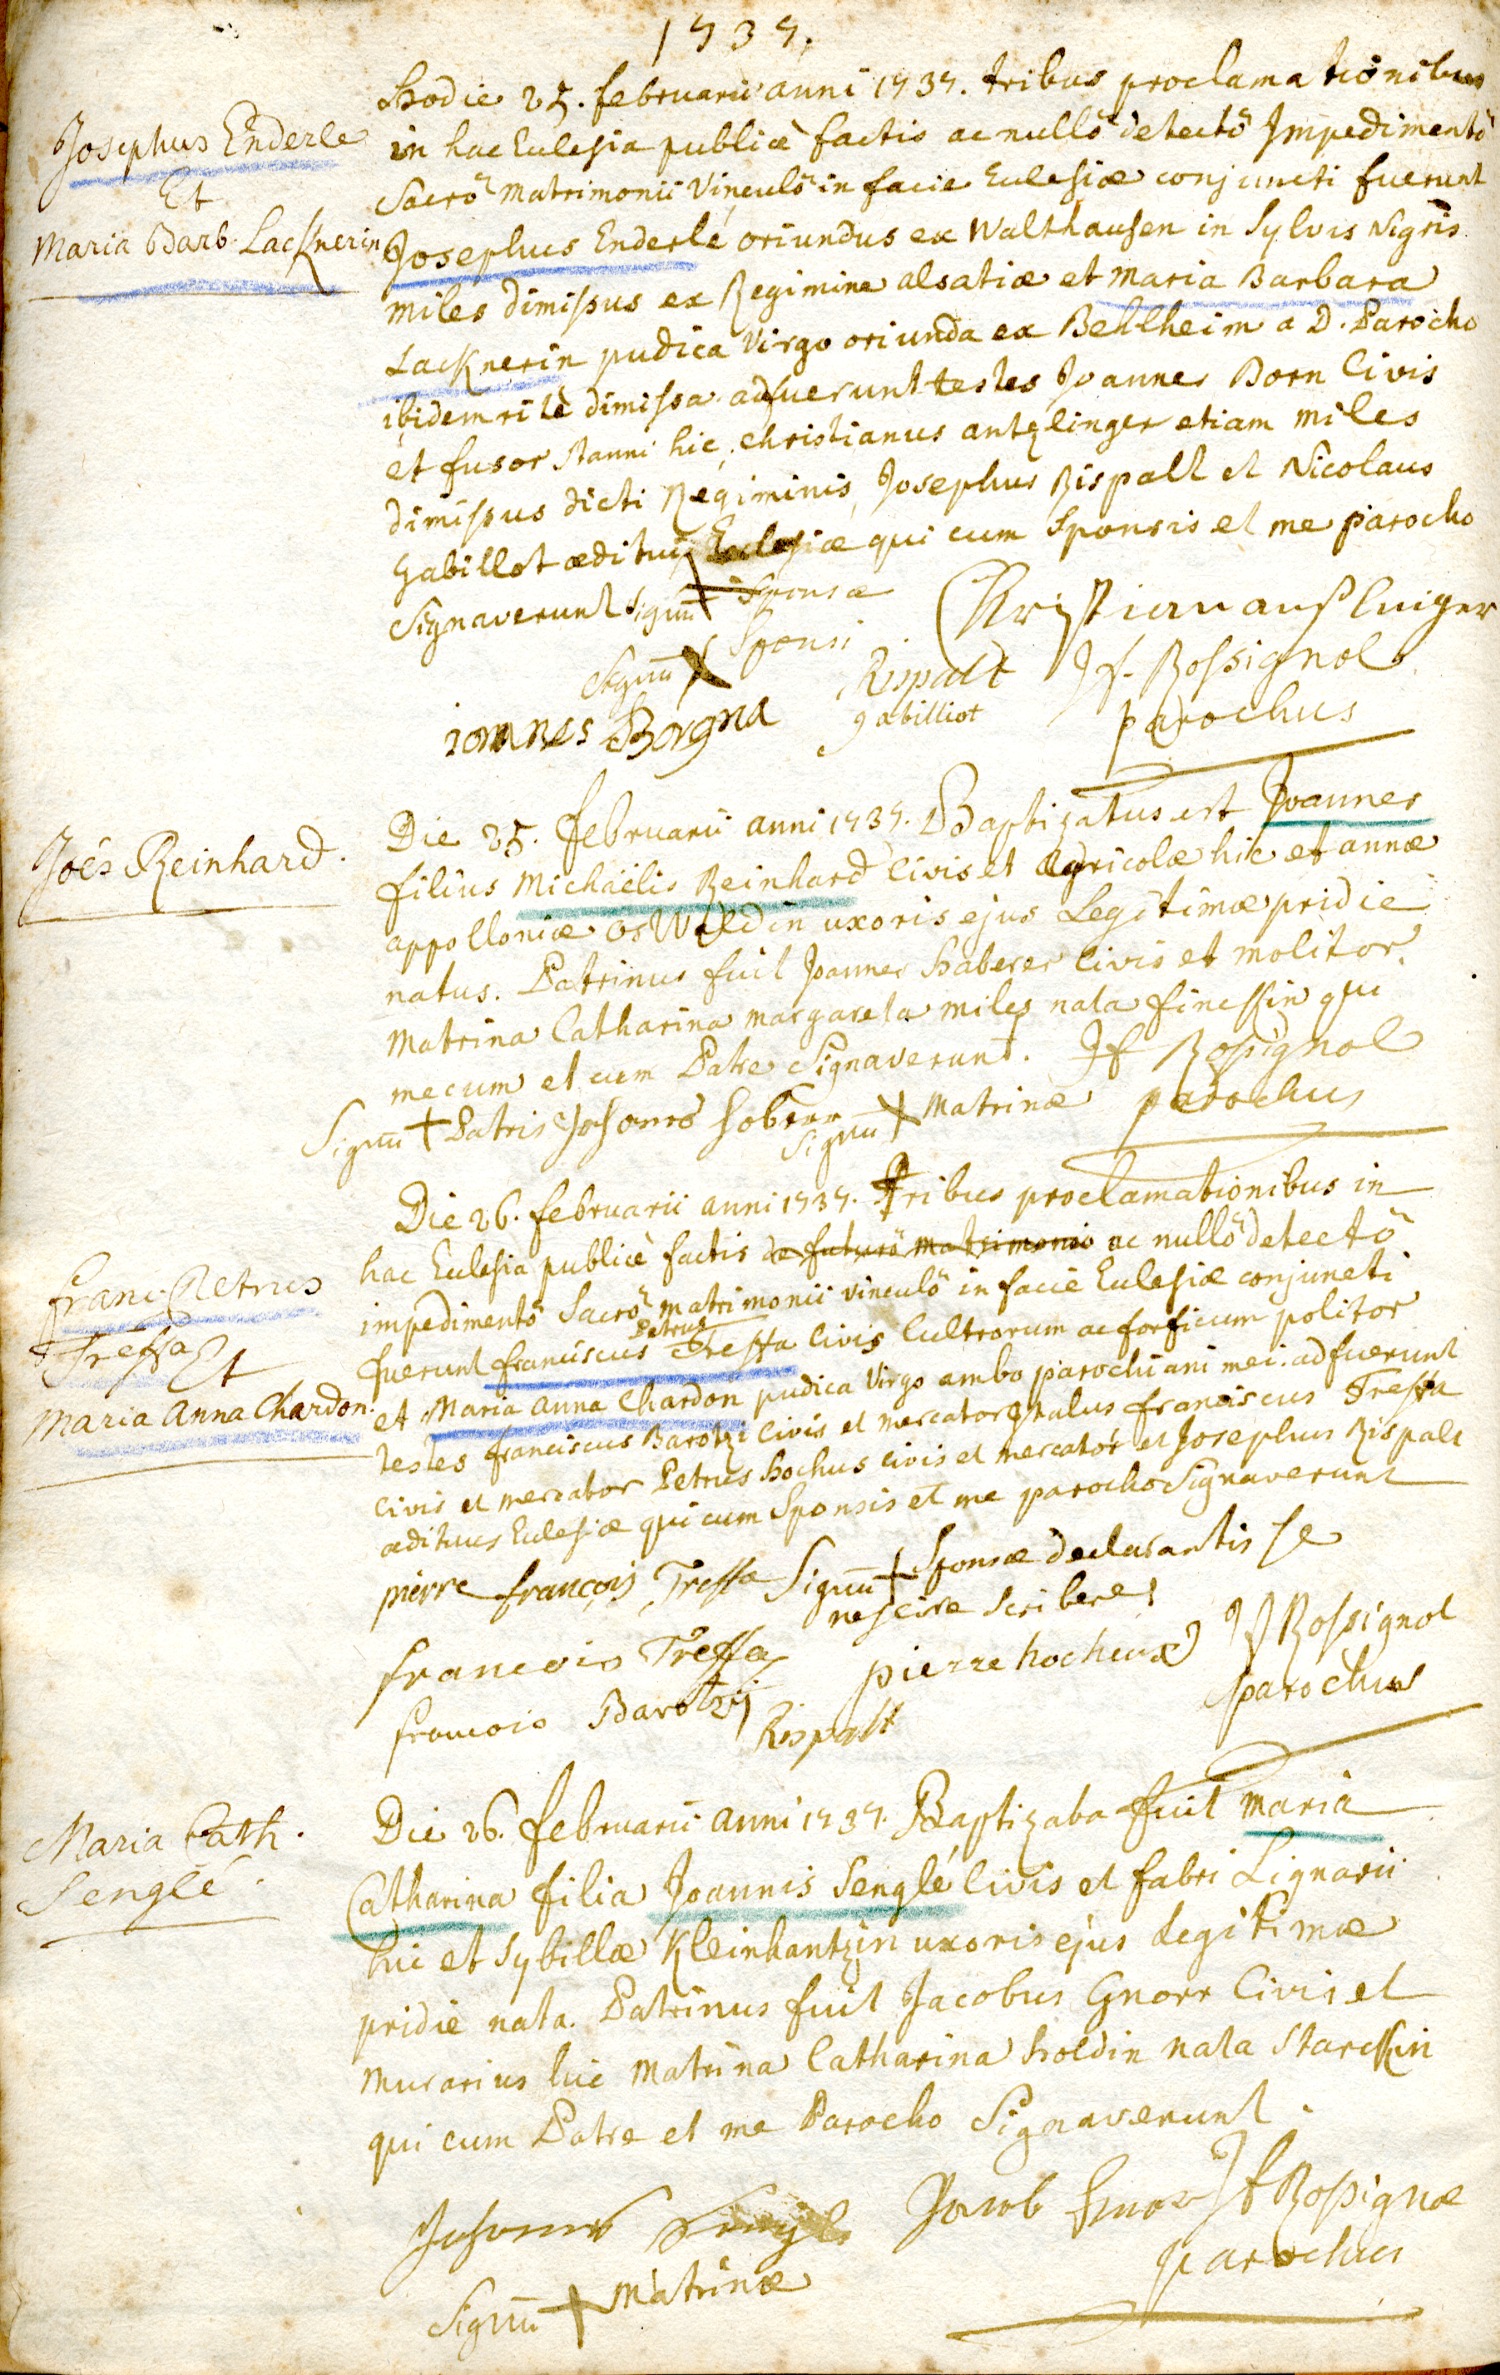 1737.
Josephus Enderle
Et
Maria Barb. Lacknerin
Hodie 25. februarii anni 1737. tribus proclamationibus
in hac Eclesia publicè factis ac nullô detectô Impedimentô
Sacrô Matrimonii Vinculô in facie Eclesiæ conjuncti fuerunt
Josephus Enderlé oriundus ex Walthausen in Sylvis Nigris
miles dimissus ex Regimine alsatiæ et Maria Barbara
Lacknerin pudica Virgo oriunda ex Behlheim a D. Parocho
ibidem ritè dimissa. adfuerunt testes Joannes Born Civis
et fusor stanni hic, christianus antzlinger etiam miles
dimissus dicti Regiminis, Josephus Rispalt et Nicolaus
Gabillot æditui Eclesiæ qui cum Sponsis et me parocho
Signaverunt Signū + Sponsæ
Christian außlinger
Signū X Sponsi
Rispalt
Jf. Rossignol
parochus
ioannes Borgna
gabilliot
Joēs Reinhard.
Die 25. februarii anni 1737. Baptizatus est Joannes
filius Michaëlis Reinhard Civis et agricolæ hic et annæ
appolloniæ osWaldin uxoris ejus Legitimæ pridie
natus. Patrinus fuit Joannes Haberer Civis et molitor.
Matrina Catharina margareta miles nata finessin qui
mecum et cum Patre Signaverunt.
Jf Rossignol
parochus
Signū + Patris
Signū + Matrinæ
franc. Petrus
Treffa
Et
Maria Anna Chardon.
Die 26. februarii anni 1737. Tribus proclamationibus in
hac Eclesia publicè factis de futurô matrimonio ac nullô detectô
impedimentô Sacrô matrimonii vinculô in facie Eclesiæ conjuncti
fuerunt franciscus Petrus Treffa Civis Cultrorum ac forficum politor
et Maria anna Chardon pudica Virgo ambo parochiani mei. adfuerunt
testes franciscus Barotzi Civis et mercator Italus franciscus Treffa
Civis et mercator Petrus Hochus civis et mercator et Josephus Rispalt
ædituus Eclesiæ qui cum Sponsis et me parocho Signaverunt
pierre françois Treffa Signū + Sponsæ declarantis se
nescire scribere
francois Treffa
pierre hocheux
Jf Rossignol
parochus
francois Barotzij
Rispalt
Maria Cath.
Senglé.
Die 26. februarii anni 1737. Baptizata fuit Maria
Catharina filia Joannis Senglé Civis et fabri Lignarii
hic et Sybillæ Kleinhantzin uxoris ejus Legitimæ
pridie nata. Patrinus fuit Jacobus Gnorr Civis et
Murarius hic Matrina Catharina Holdin nata Starckin
qui cum Patre et me Parocho Signaverunt.
Jacob
Jf Rossignol
parochus
Signū + Matrinæ